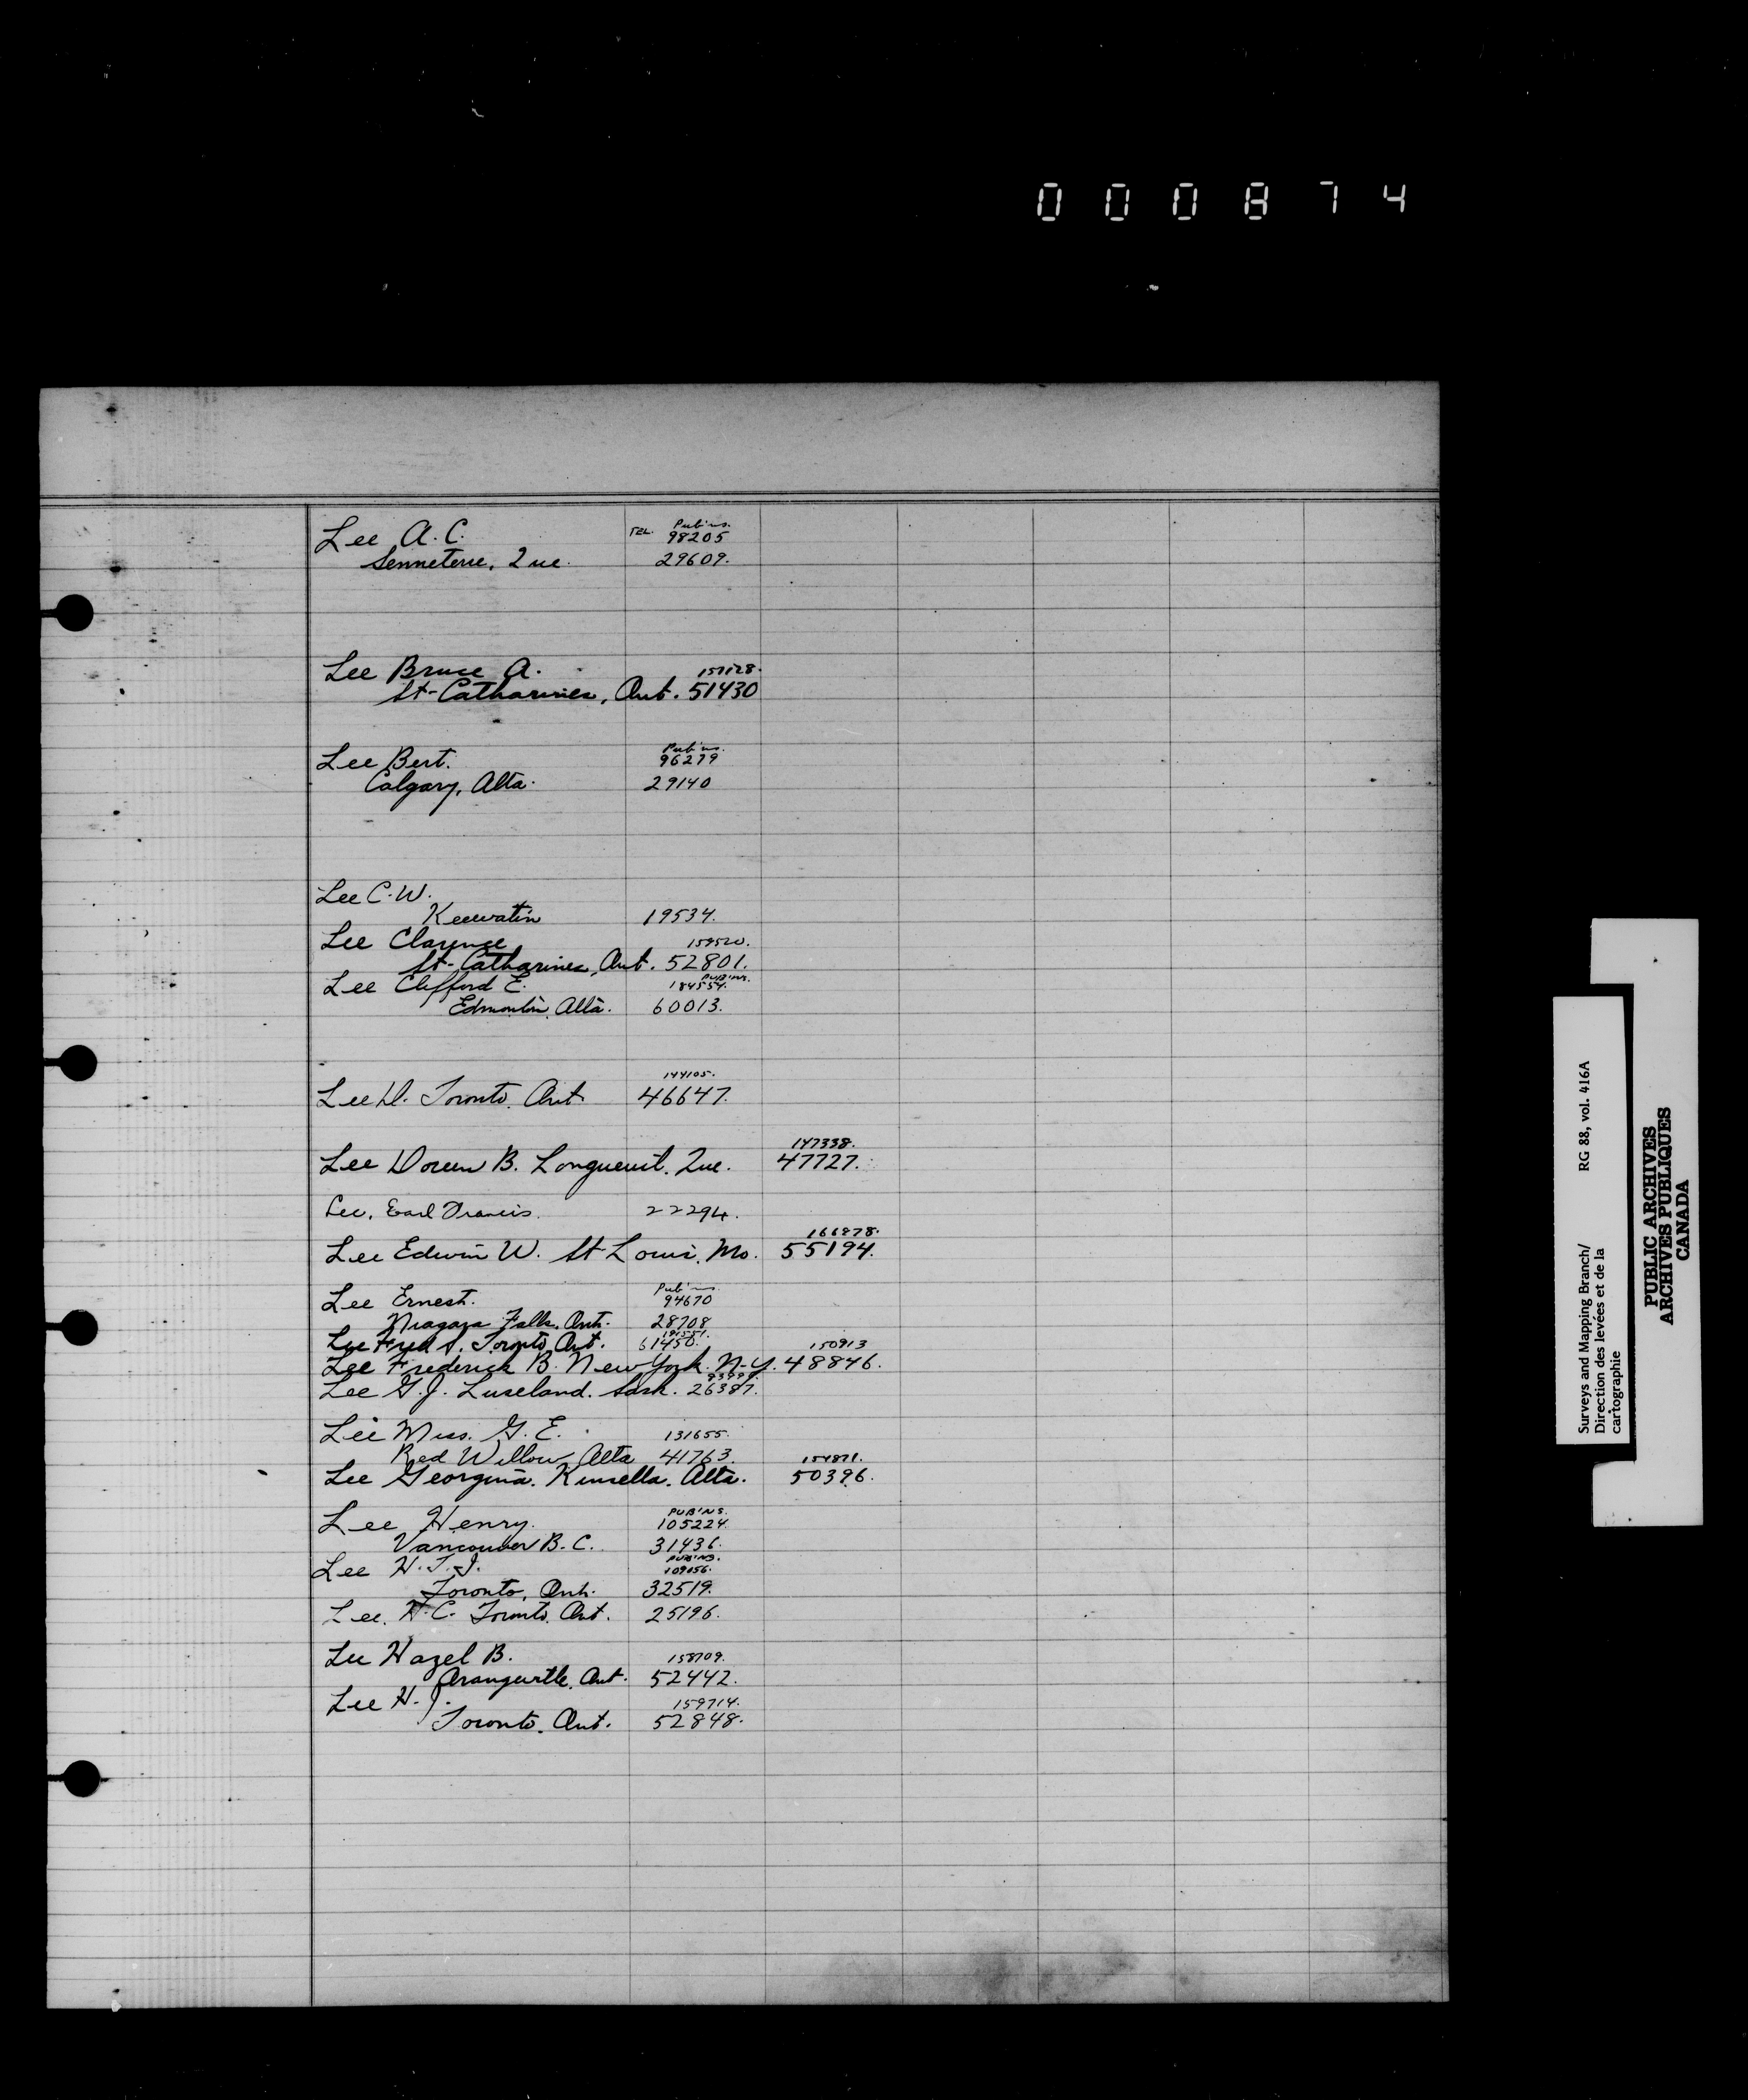 000874
Lee A. C. TEL. Pub'ns. 98205
Senneterre, Que. 29609.
Lee Bruce A. 157128.
St-Catharines, Ont. 51430
Lee Bert. Pub'ns. 96279
Calgary, Alta. 29140
Lee C. W.
Keewatin 19534.
Lee Clarence 159520.
St-Catharines, Ont. 52801.
Lee Clifford E. PUB'NS. 184554.
Edmonton, Alta. 60013.
144105.
Lee D. Toronto, Ont. 46647.
147338.
Lee Doreen B. Longueuil, Que. 47727.
Lee, Earl Francis. 22294.
166878.
Lee Edwin W. St Louis, Mo. 55194.
Lee Ernest. Pub'ns 94670
Niagara Falls, Ont. 28708
Lee Fred S. Toronto, Ont. 61450.
150913
Lee Frederick B. New York. N-Y. 48846.
Lee G. J. Luseland. Sask. 26387.
Lee Miss. G. E. 131655.
Red Willow, Alta 41763.
154871.
Lee Georgina. Kinsella. Alta. 50396.
PUB'NS.
Lee Henry. 105224.
Vancouver B. C. 31436.
PUB'NS.
Lee H. T. J. 109056.
Toronto, Ont. 32519.
Lee. H. C. Toronto, Ont. 25196.
Lee Hazel B. 158709.
Orangeville, Ont. 52442.
Lee H. J. 159714.
Toronto, Ont. 52848.
Surveys and Mapping Branch/ RG 88, vol. 416A
Direction des levées et de la
cartographie
PUBLIC ARCHIVES
ARCHIVES PUBLIQUES
CANADA